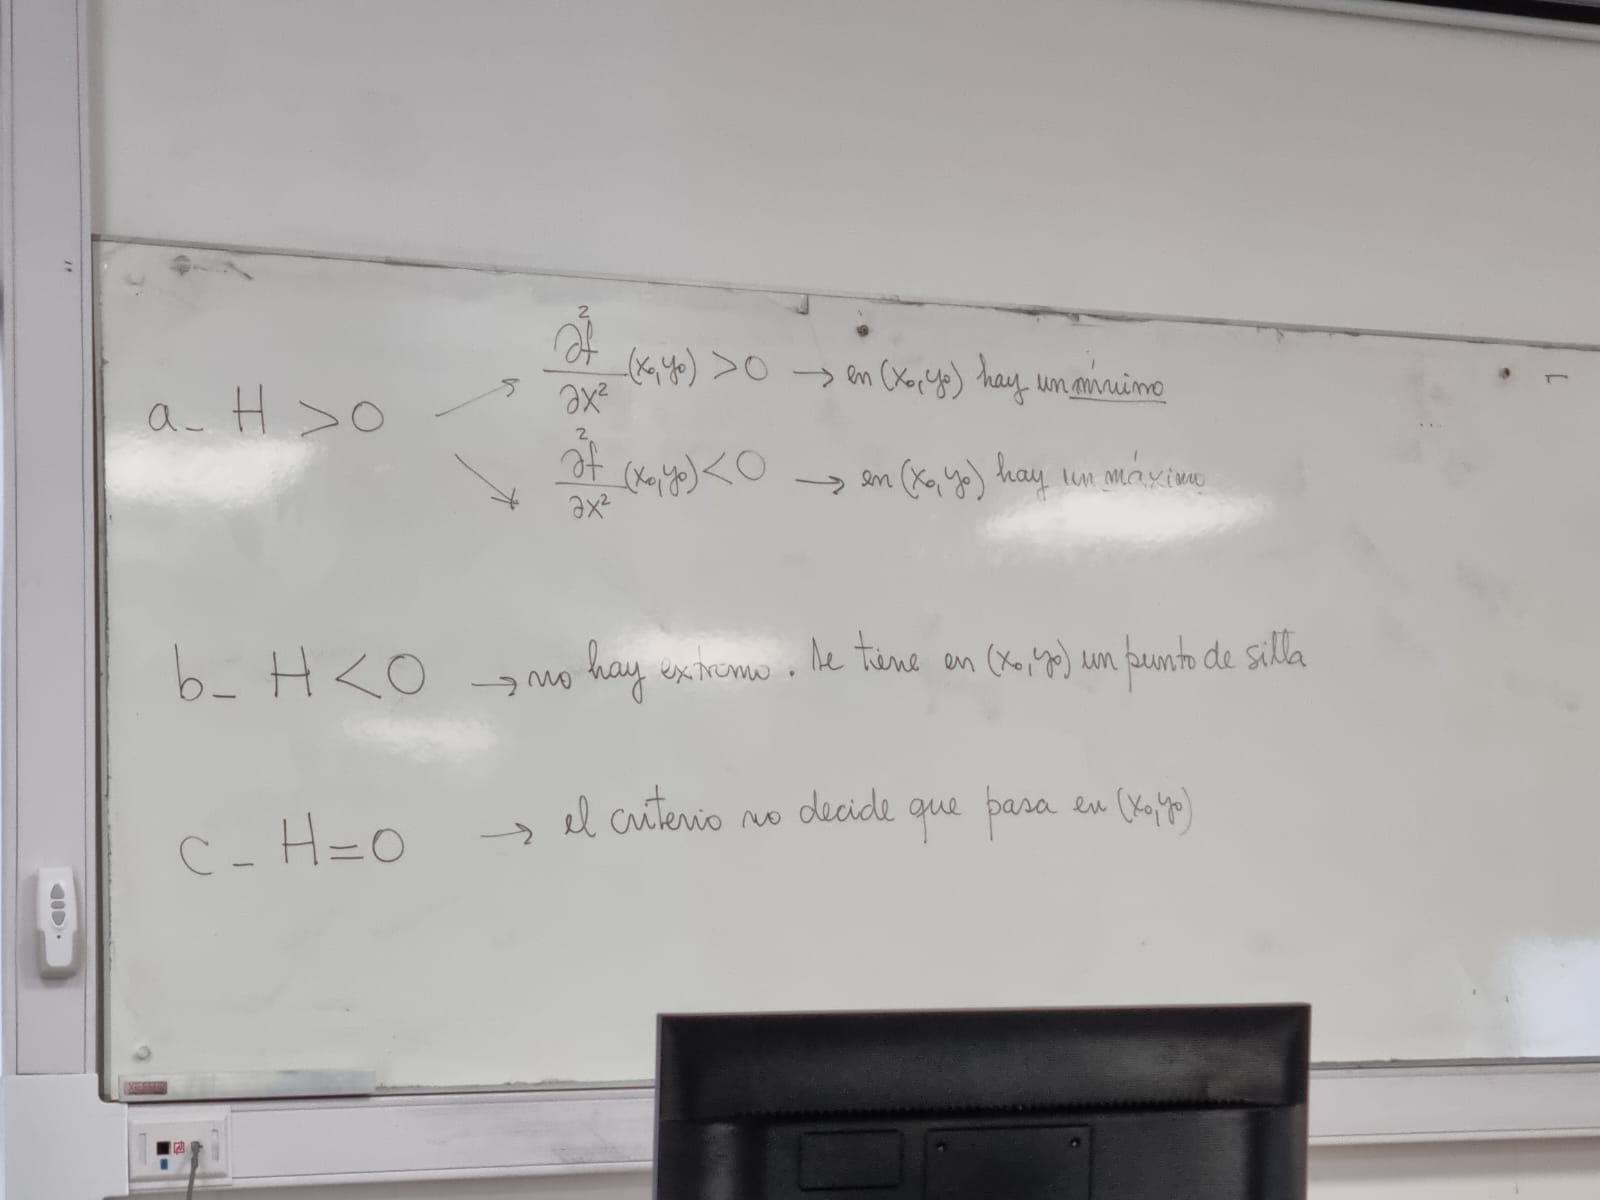 a- H > 0
∂²f/∂x² (x₀,y₀) > 0 → en (x₀,y₀) hay un mínimo
∂²f/∂x² (x₀,y₀) < 0 → en (x₀,y₀) hay un máximo
b- H < 0 → no hay extremo. Se tiene en (x₀,y₀) un punto de silla
c- H = 0 → el criterio no decide que pasa en (x₀,y₀)